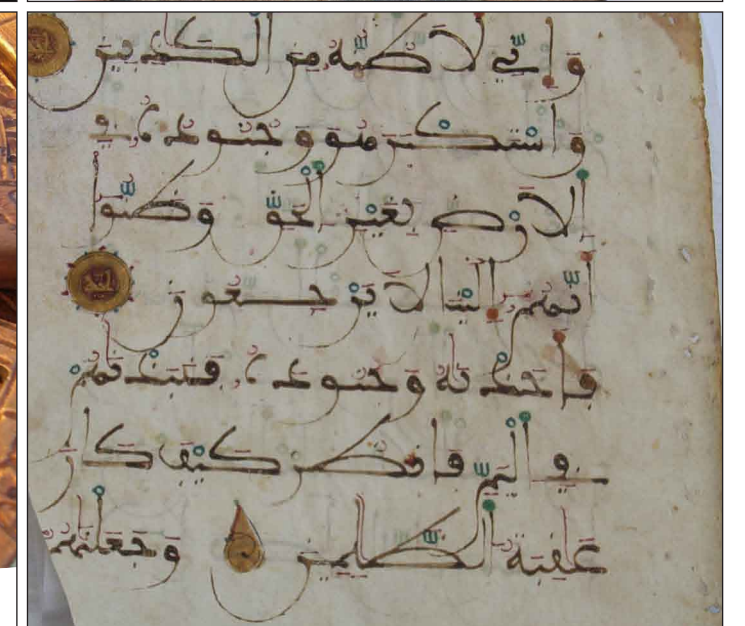 وإني لأظنه من الكذبين
واستكبر هو وجنوده في
الأرض بغير الحق وظنوا
أنهم إلينا لا يرجعون
فأخذنه وجنوده فنبذنهم
في اليم فانظر كيف كان
عقبة الظلمين وجعلنهم